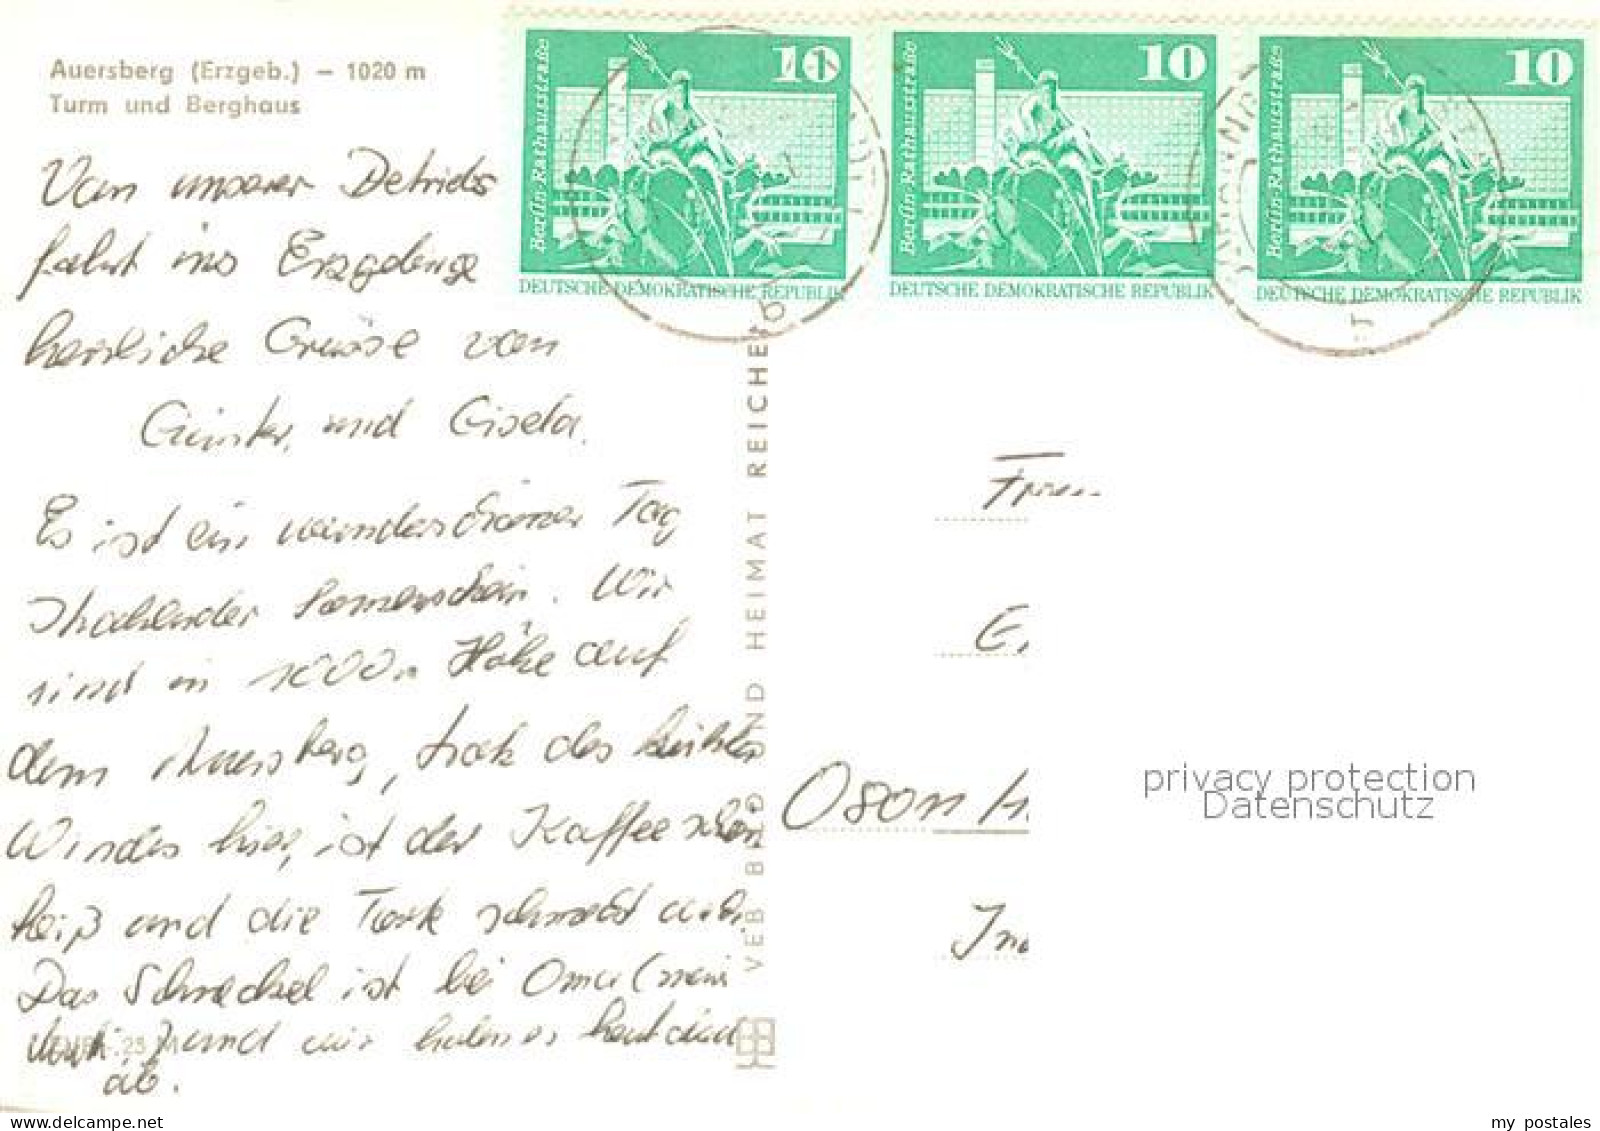 Auersberg (Erzgeb.) – 1020 m
Turm und Berghaus
10
10
10
Berlin-Rathausstraße
Berlin-Rathausstraße
Berlin-Rathausstraße
DEUTSCHE DEMOKRATISCHE REPUBLIK
DEUTSCHE DEMOKRATISCHE REPUBLIK
DEUTSCHE DEMOKRATISCHE REPUBLIK
Von unserer Betriebs
fahrt ins Erzgebirge
herzliche Grüsse von
Günter und Gisela.
Es ist ein wunderschöner Tag
strahlender Sonnenschein. Wir
sind in 1000m Höhe auf
dem Auersberg, trotz des
Windes hier, ist der Kaffee schön
heiß und die Torte schmeckt
Das ist bei Oma (
und wir holen es heut
ab.
VEB BILD UND HEIMAT REICHE
Frau
privacy protection
Datenschutz
www.delcampe.net
my_postales